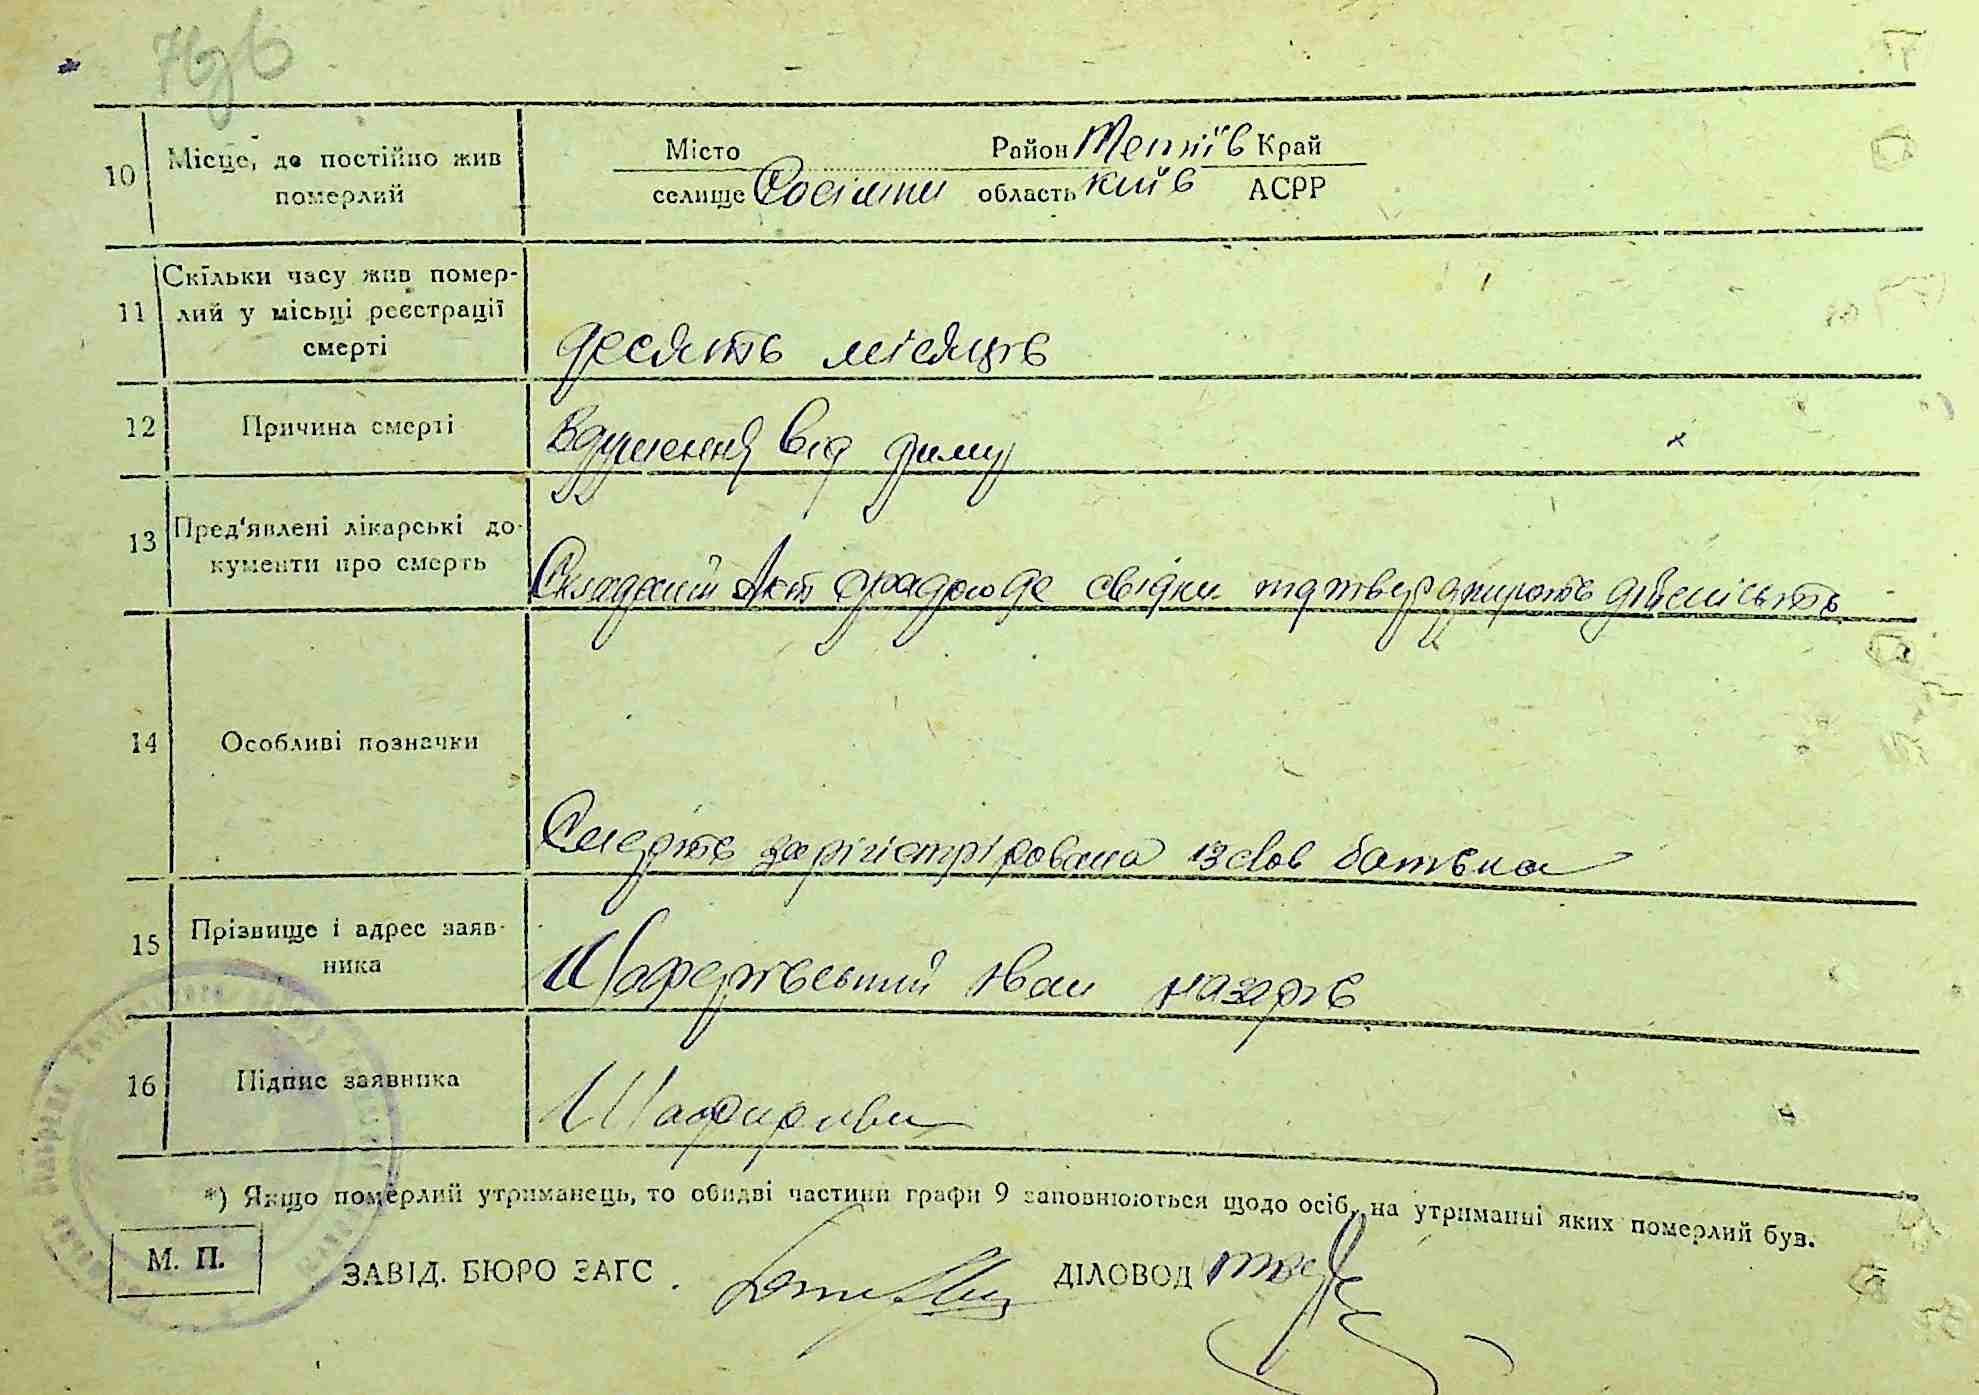 10 Місце, де постійно жив Місто Район Тетіїв Край
померлий селище область Київ АСРР
11 Скільки часу жив помер-
лий у місьці реєстрації
смерті десять місяців
12 Причина смерті вдушення від диму
13 Пред'явлені лікарські до-
кументи про смерть Складений Акт де свідки дійсність
14 Особливі позначки
Смерть зарігістрірована із слов батька
15 Прізвище і адрес заяв-
ника Іван Назарів
16 Підпис заявника
*) Якщо померлий утриманець, то обидві частини графи 9 заповнюються щодо осіб, на утриманні яких померлий був.
М. П. ЗАВІД. БЮРО ЗАГС ДІЛОВОД